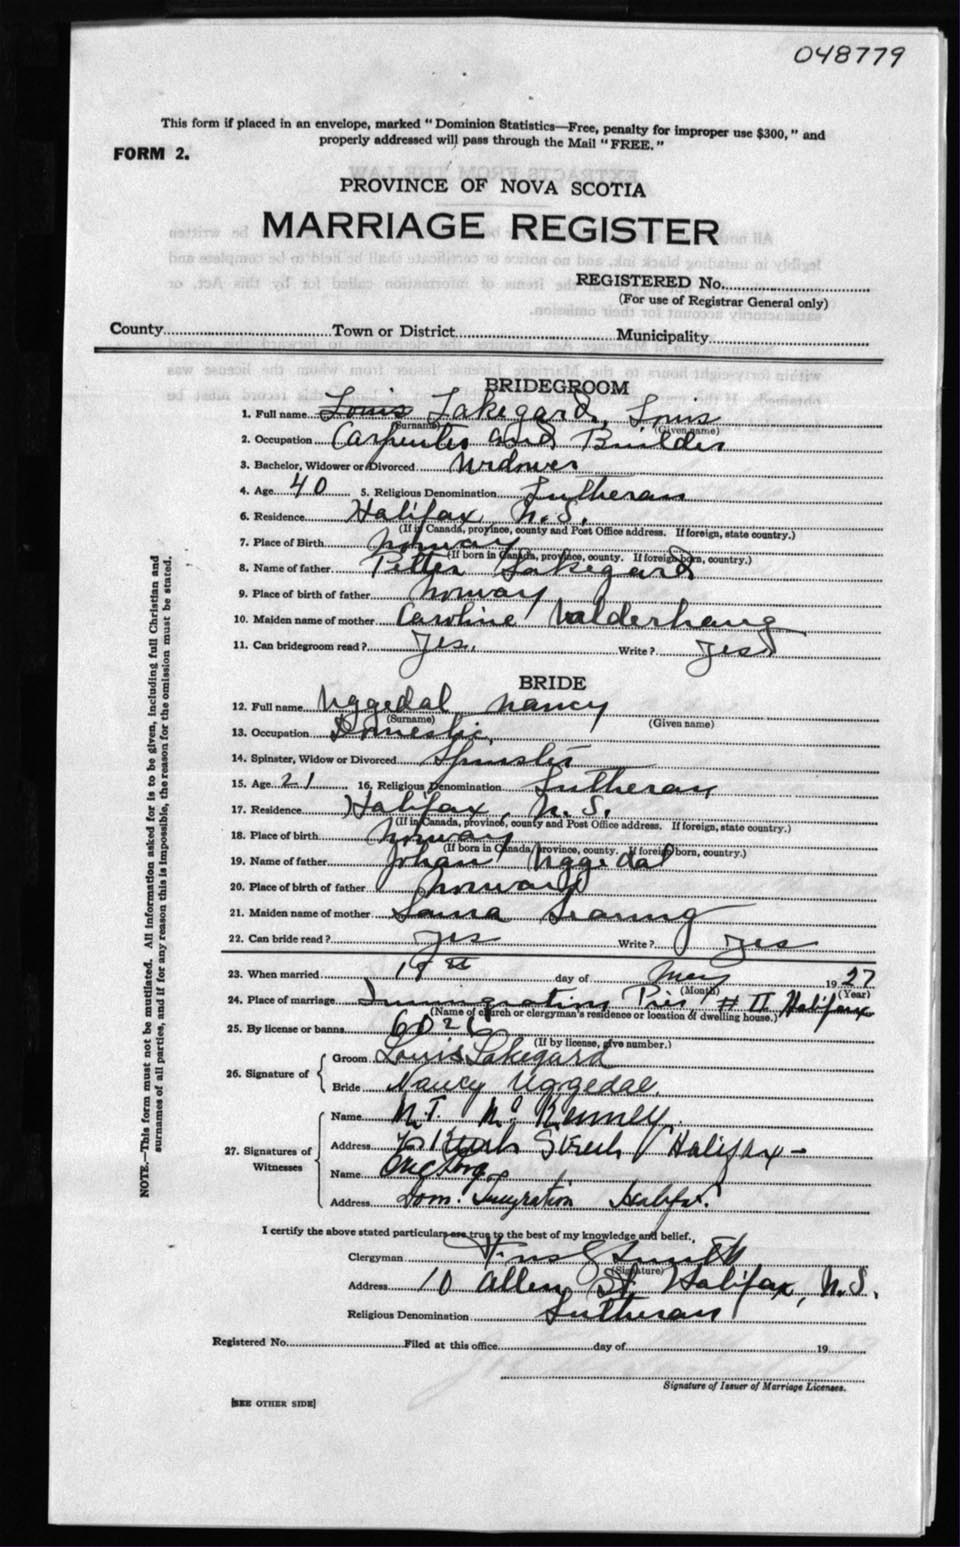 048779
This form if placed in an envelope, marked "Dominion Statistics—Free, penalty for improper use $300," and
properly addressed will pass through the Mail "FREE."
FORM 2.
PROVINCE OF NOVA SCOTIA
MARRIAGE REGISTER
REGISTERED No.
(For use of Registrar General only)
County Town or District Municipality
BRIDEGROOM
1. Full name Louis Lakegard, Louis
(Surname) (Given name)
2. Occupation Carpenter and Builder
3. Bachelor, Widower or Divorced Widower
4. Age 40 5. Religious Denomination Lutheran
6. Residence Halifax, N.S.
(If in Canada, province, county and Post Office address. If foreign, state country.)
7. Place of Birth Norway
(If born in Canada, province, county. If foreign born, country.)
8. Name of father Petter Lakegard
9. Place of birth of father Norway
10. Maiden name of mother Caroline Valderhaug
11. Can bridegroom read? Yes. Write? Yes
BRIDE
12. Full name Uggedal Nancy
(Surname) (Given name)
13. Occupation Domestic
14. Spinster, Widow or Divorced Spinster
15. Age 21 16. Religious Denomination Lutheran
17. Residence Halifax, N.S.
(If in Canada, province, county and Post Office address. If foreign, state country.)
18. Place of birth Norway
(If born in Canada, province, county. If foreign born, country.)
19. Name of father Johan Uggedal
20. Place of birth of father Norway
21. Maiden name of mother
22. Can bride read? Yes Write? Yes
23. When married day of May 1927
(Month) (Year)
24. Place of marriage Immigration Pier # II Halifax
(Name of church or clergyman's residence or location of dwelling house.)
25. By license or banns
(If by license, give number.)
26. Signature of Groom Louis Lakegard
Bride Nancy Uggedal
27. Signatures of Witnesses Name
Address Street Halifax
Name
Address Dom. Immigration Halifax
I certify the above stated particulars are true to the best of my knowledge and belief.
Clergyman
(Signature)
Address 10 Allen St. Halifax, N.S.
Religious Denomination Lutheran
Registered No. Filed at this office day of 19
Signature of Issuer of Marriage Licenses.
[SEE OTHER SIDE]
NOTE.—This form must not be mutilated. All information asked for is to be given, including full Christian and
surnames of all parties, and if for any reason this is impossible, the reason for the omission must be stated.